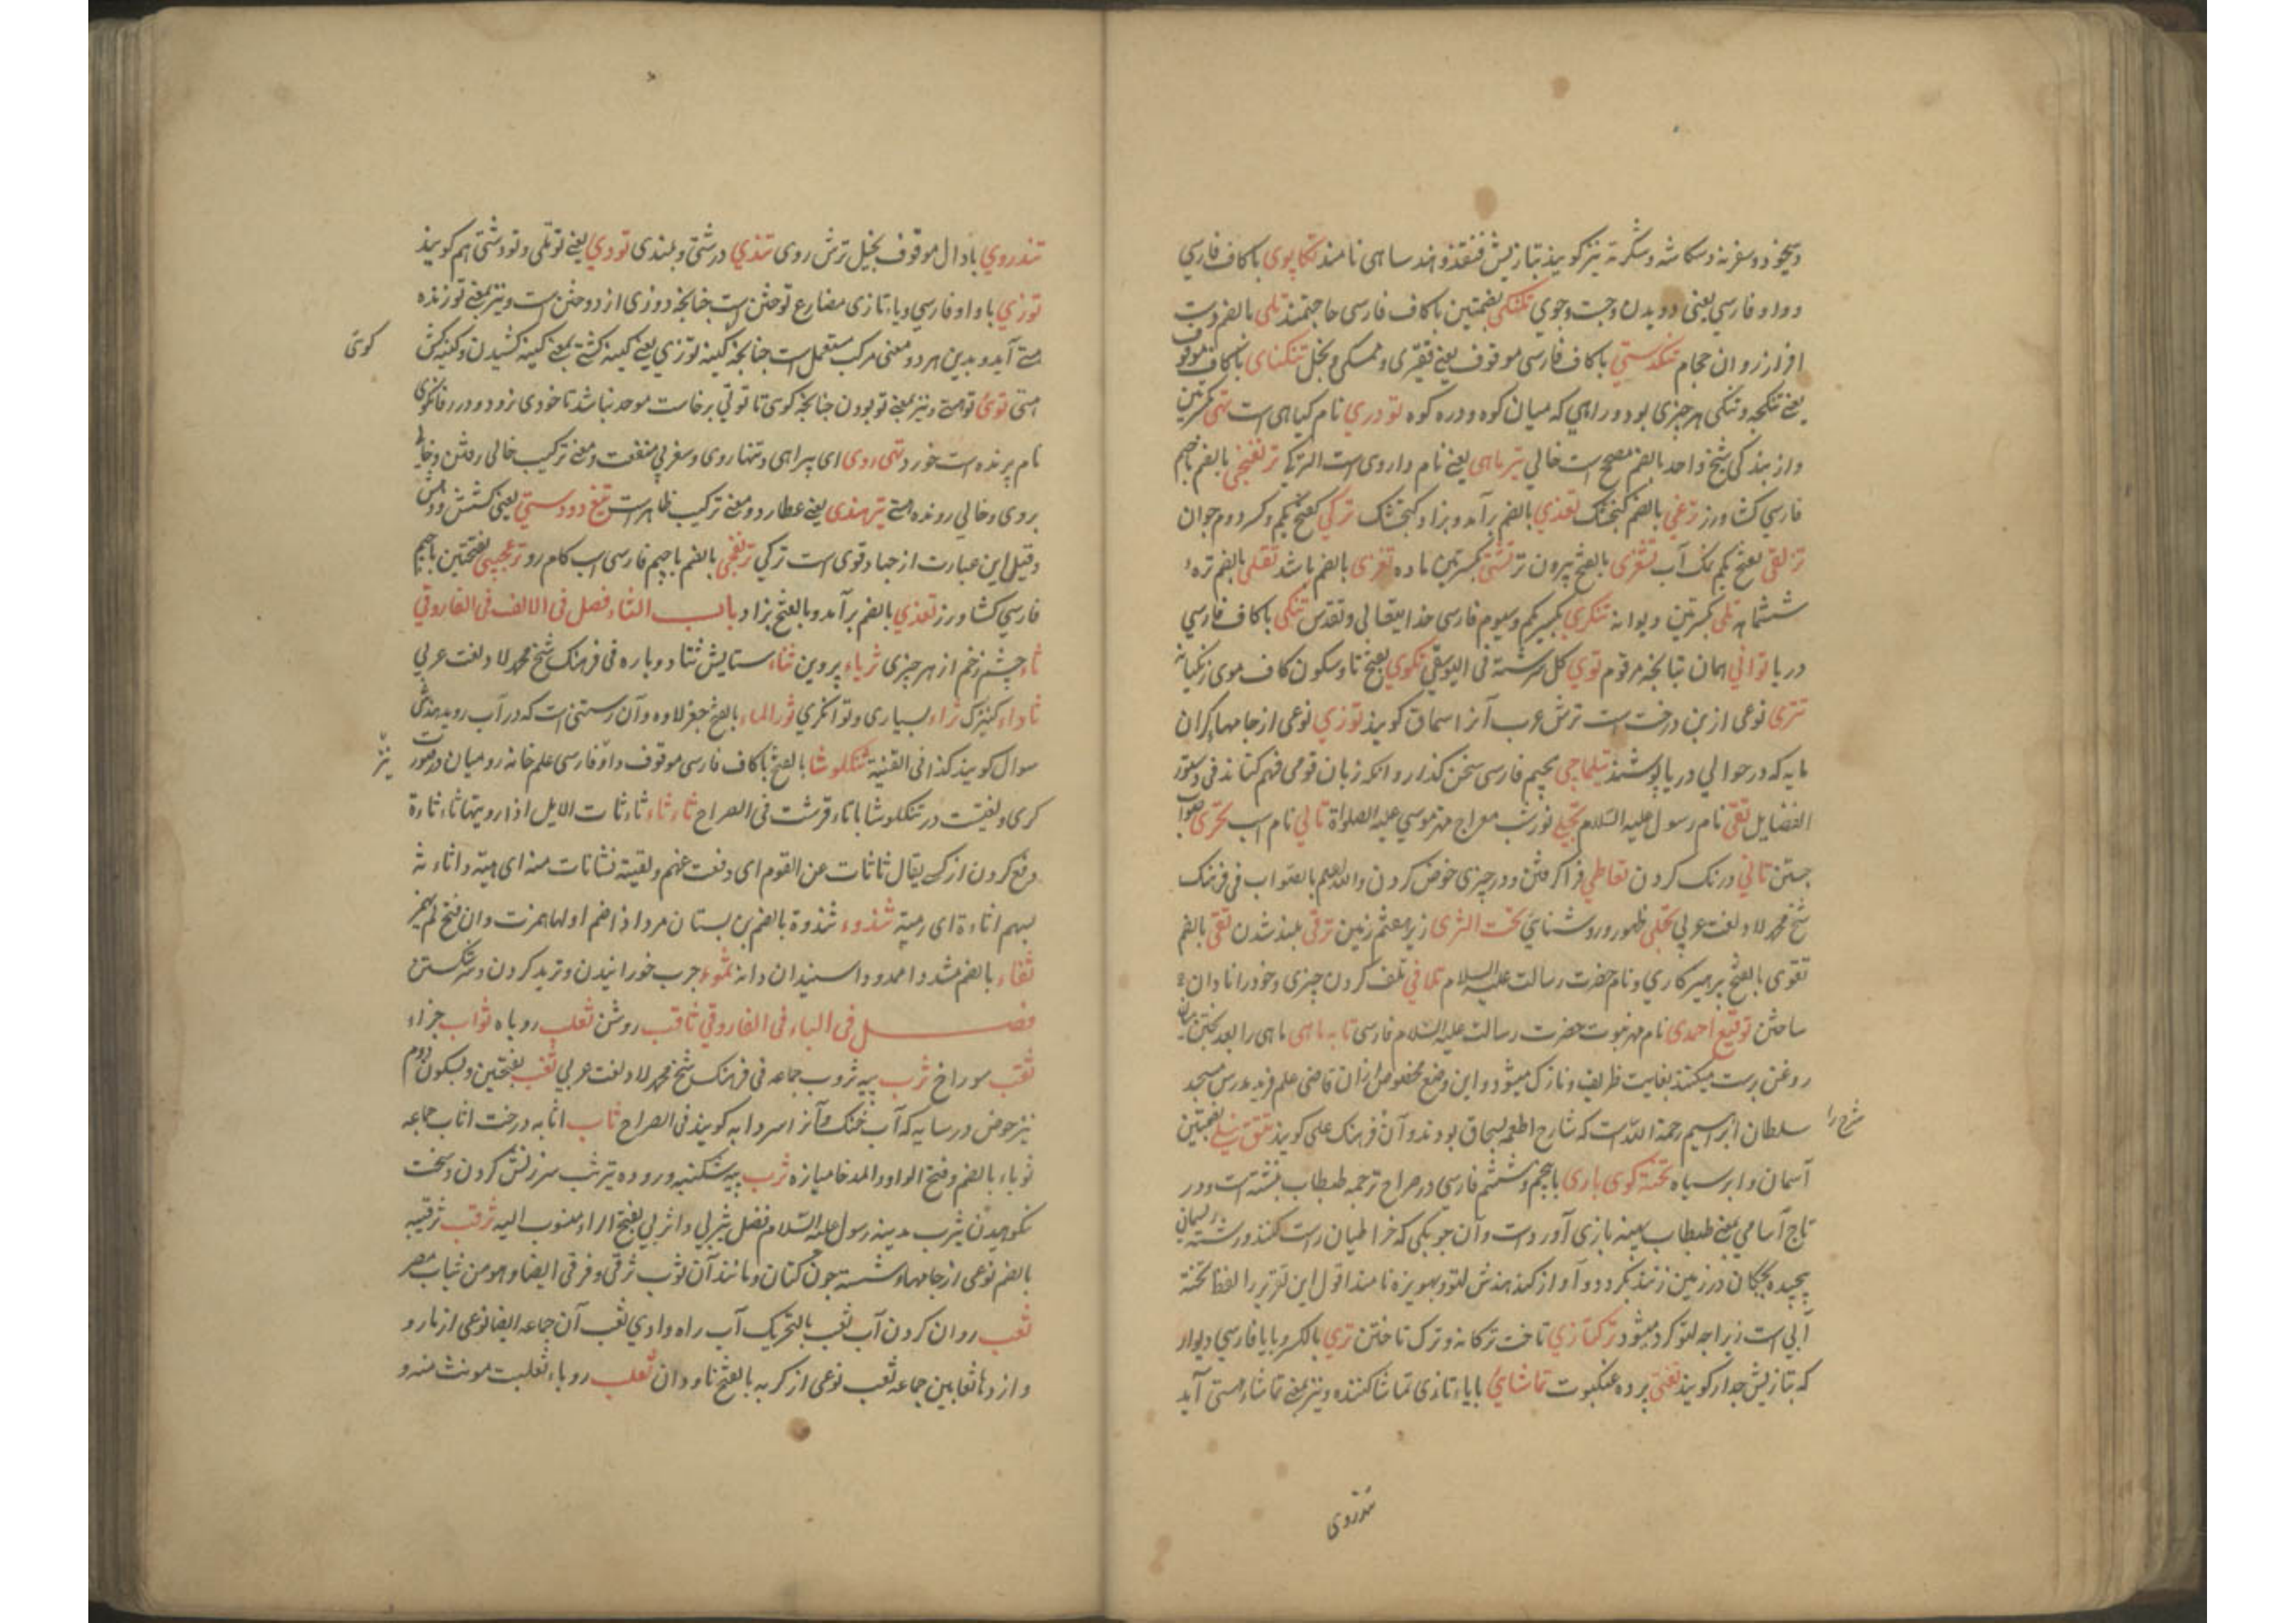 و سغرنه و سکاشه و سگرنه نیز گویند بتازیش قنفذ و هند ساهی نامند تکاپوی با کاف فارسی
و واو فارسی یعنی دویدن و جست و جوی تنگی بضمتین با کاف فارسی حاجتمند تلی بالضم دست
افزار زوان حجام تنکدستی با کاف فارسی موقوف یعنی فقیری و ممسکی و بخل تنکنای با کاف موقوف
یعنی تنکجه و تنکی هر چیزی بود و راهی که میان کوه و دره کوه تودری نام کیاهی است تهی بکسرتین
خالی تیرماهی یعنی نام داروی است الترکیا بالضم با جیم
فارسی کشاورز ترغی بالضم کنجشک تغذی بالضم برآمد و بزاد کنجشک ترکی بفتح یکم و کسر دوم جوان
بفتح یکم نمک آب بالفتح بیرون بکسرتین ماده بالضم باشد بالضم تره
ششماهه تلی بکسرتین دیوانه تنکری بکسر یکم و سیوم فارسی خدایتعالی و تقدس تنکی با کاف فارسی
دریا توانی همان بتابخه مرقوم توی کل سرشته فی الیوسفی تکوی بفتح تا و سکون کاف موی زنکیانه
تتری نوعی ازین درخت است ترش عرب آنرا سماق کویند توزی نوعی از جامها کران
مایه که در حوالی دریا پوشند تیلماجی بجیم فارسی سخن کذار و انکه زبان قومی فهم کناند فی دستور
الفضایل تقی نام رسول علیه السلام تجلی نور شب معراج مهتر موسی علیه الصلواة تالی نام اسب تحری صواب
جستن تانی درنک کردن تعاطی فراکرفتن و در چیزی خوض کردن والله اعلم بالصواب فی فرهنک
شیخ محمد لاد لغت عربی تجلی ظهور و روشنائی تحت الثری زیر هفتم زمین ترقی بلند شدن تقی بالضم
تقوی بالفتح پرهیزکاری و نام حضرت رسالت علیه السلام تلافی تلف کردن چیزی و خود را نادان
ساختن توقیع احمدی نام مهر نبوت حضرت رسالت علیه السلام فارسی تابه ماهی ماهی را بعد پختن بریان
روغن رست میکنند بغایت ظریف و نازک میشود و این وضع مخصوص ازان قاضی علم فرید مدرس مسجد
سلطان ابراهیم رحمة الله است که شارح اطعمه بسحاق بودند و آن فرهنک علی کویند تتق نیلی بضمتین
شرح را
آسمان و ابر سیاه تخته کوی بازی با جیم و ششم فارسی در صراح ترجمه طبطاب نبشته است و در
تاج آسامی بمعنی طبطاب بهینه بازی آورد است و آن چوبکی که خراطیان راست کنند و رشته ریسمان
پیچیده بچکان در زمین زنند بکردد و آواز کند هندش لتو و بهویزه نامند اقول این تقریر را لفظ تخته
آبی است زیرا چه لتو کرد میشود ترکتازی تاخت ترکانه و ترک تاختن تری بالکسر و با یا فارسی دیوار
که بتازیش جدار کویند تفتی پرده عنکبوت تماشائی با یاء تازی تماشا کننده و نیز بمعنی تماشاء هستی آید
تندروی
تندروی با دال موقوف بخیل ترش روی تندی درشتی و بلندی تودی یعنی توتلی و تودشتی هم کویند
توزی با واو فارسی و یاء تازی مضارع توختن است چنانچه دوزی از دوختن است و نیز بمعنی توزنده
هستی آید و بدین هر دو معنی مرکب مستعمل است چنانچه کینه توزی یعنی کینه کشتی بمعنی کینه کشیدن و کینه کش
کوئی
هستی توئی تو هستی و نیز بمعنی تو بودن چنانچه کوی تا توئی برخاست موحد نباشد تا خودی نرود و در رفانکوی
نام پرنده است خورد تهی روی ای بیراهی و تنها روی و سفر بی منفعت و معنی ترکیب خالی رفتن و خالی
بروی و خالی رونده هستی تیرهندی یعنی عطارد و معنی ترکیب ظاهر است تیغ دو دستی یعنی کشش و دهش
و قیل این عبارت از جهاد قوی است ترکی بالضم با جیم فارسی اسب کام رو بفتحتین با جیم
فارسی کشاورز تغذی بالضم برآمد و بالفتح بزاد باب الثاء فصل فی الالف فی الفاروقی
ثاء چشم زخم از هر چیزی ثریاء پروین ثناء ستایش ثنا دوباره فی فرهنک شیخ محمد لاد لغت عربی
ثاداء کنیزک ثراء بسیاری و توانکری ثور الماء بالفتح جغز لاوه و آن رستنی است که در آب روید هندش
سوال کویند کذا فی القنیة ثنکلوشا بالفتح با کاف فارسی موقوف و او فارسی علم خانه رومیان در صورت
نیز
کری و لغیست در تنکلوشا با تاء قرشت فی الصراح ثار ثاء ثاءثات الابل اذا رویتها ثاءثاءة
دفع کردن از کسی یقال ثاثات عن القوم ای دفعت عنهم و لقیته فثاثات منه ای هبته و اثاءته
بسهم اثاءة ای رمیته ثندوء ثندوة بالضم بن پستان مرد اذا ضم اولها همزت و ان فتح لم یهمز
ثفاء بالضم مشددا ممدودا سپندان دانه ثموء چرب خورانیدن و ترید کردن و سر شکستن
فصل فی الباء فی الفاروقی ثاقب روشن ثعلب روباه ثواب جزاء
ثقب سوراخ ثرب پیه ثروب جماعه فی فرهنک شیخ محمد لاد لغت عربی ثغب بفتحتین و بسکون دوم
نیز حوض در سایه که آب خنک و آنرا سردابه کویند فی الصراح ثاب اثابه درخت اثاب جماعه
ثوباء بالضم و فتح الواو و المد خامیازه ثرب پیه شکنبه و روده تثریب سرزنش کردن و سخت
نکوهیدن یثرب مدینه رسول علیه السلام نصل یثربی و اثربی بفتح الراء منسوب الیه ثرقب ثرقبیه
بالضم نوعی از جامهاء شسته چون کتان و مانند آن ثوب ثرقبی و فرقبی ایضا و هو من ثیاب مصر
ثعب روان کردن آب ثعب بالتحریک آب راه وادی ثعب آن جماعه ایضا نوعی از مار و
و اژدها ثعابین جماعه ثعب نوعی از کربه بالفتح ناودان ثعلب روباه ثعلبت مونث منه و